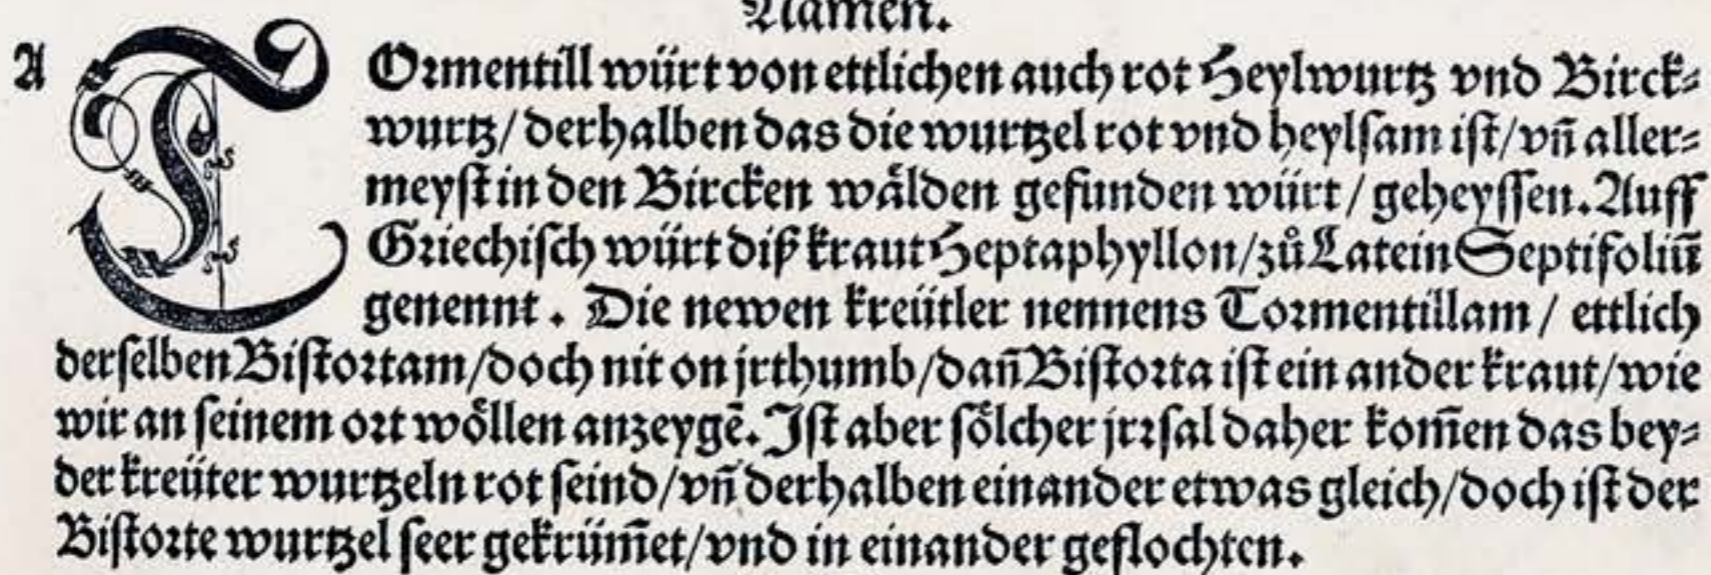 Namen.
A TOrmentill würt von ettlichen auch rot Heylwurtz vnd Birck⸗
wurtz/ derhalben das die wurtzel rot vnd heylſam iſt/ vñ aller⸗
meyſt in den Bircken wålden gefunden würt / geheyſſen. Auff
Griechiſch würt diß kraut Heptaphyllon/ zů Latein Septifoliū
genennt. Die newen kreütler nennens Tormentillam / ettlich
derſelben Biſtortam/ doch nit on jrthumb/ dañ Biſtorta iſt ein ander kraut/ wie
wir an ſeinem ort wöllen anzeygē. Iſt aber ſölcher jrrſal daher kom̄en das bey⸗
der kreüter wurtzeln rot ſeind/ vñ derhalben einander etwas gleich/ doch iſt der
Biſtorte wurtzel ſeer gekrüm̄et/ vnd in einander geflochten.